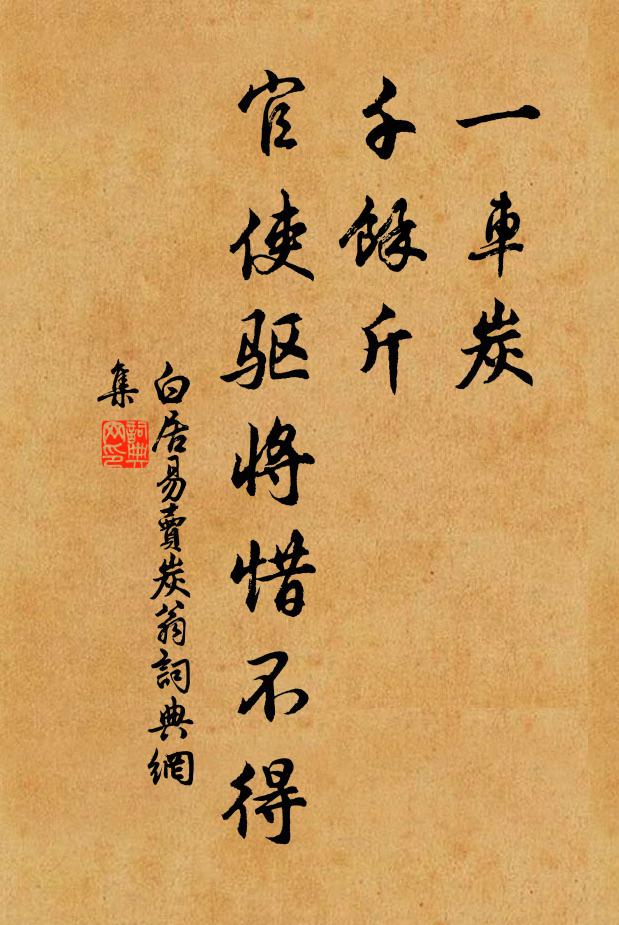 一車炭
千餘斤
官使驱將惜不得
白居易賣炭翁詞典網
集
詞典
网印